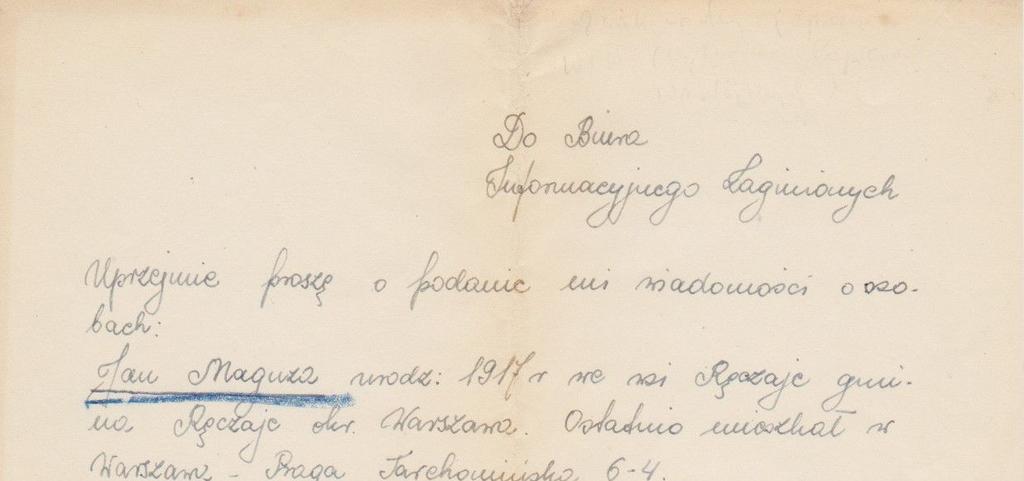 Do Biura
Informacyjnego Zaginionych
Uprzejmie proszę o podanie mi wiadomości o oso-
bach:
Jan Maguza urodz: 1917 r we wsi Ręczaje gmi-
na Ręczaje okr. Warszawa. Ostatnio mieszkał w
Warszawa - Praga Tarchomińska 6-4.